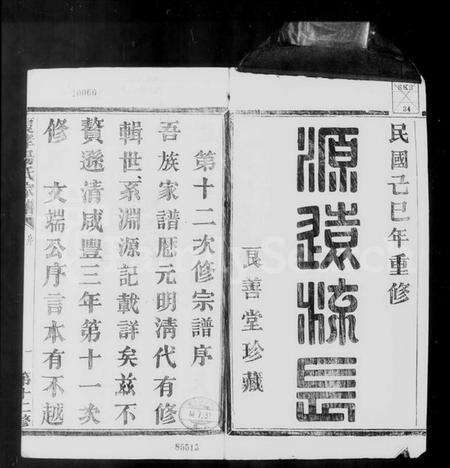 民國己巳年重修
源遠流長
艮善堂珍藏
第十二次修宗譜序
吾族家譜歷元明清代有修
輯世系淵源記載詳矣茲不
贅遜清咸豐三年第十一次
修 文端公序言本有不越
氏宗譜
序
一
第十二修
20060
85515
24